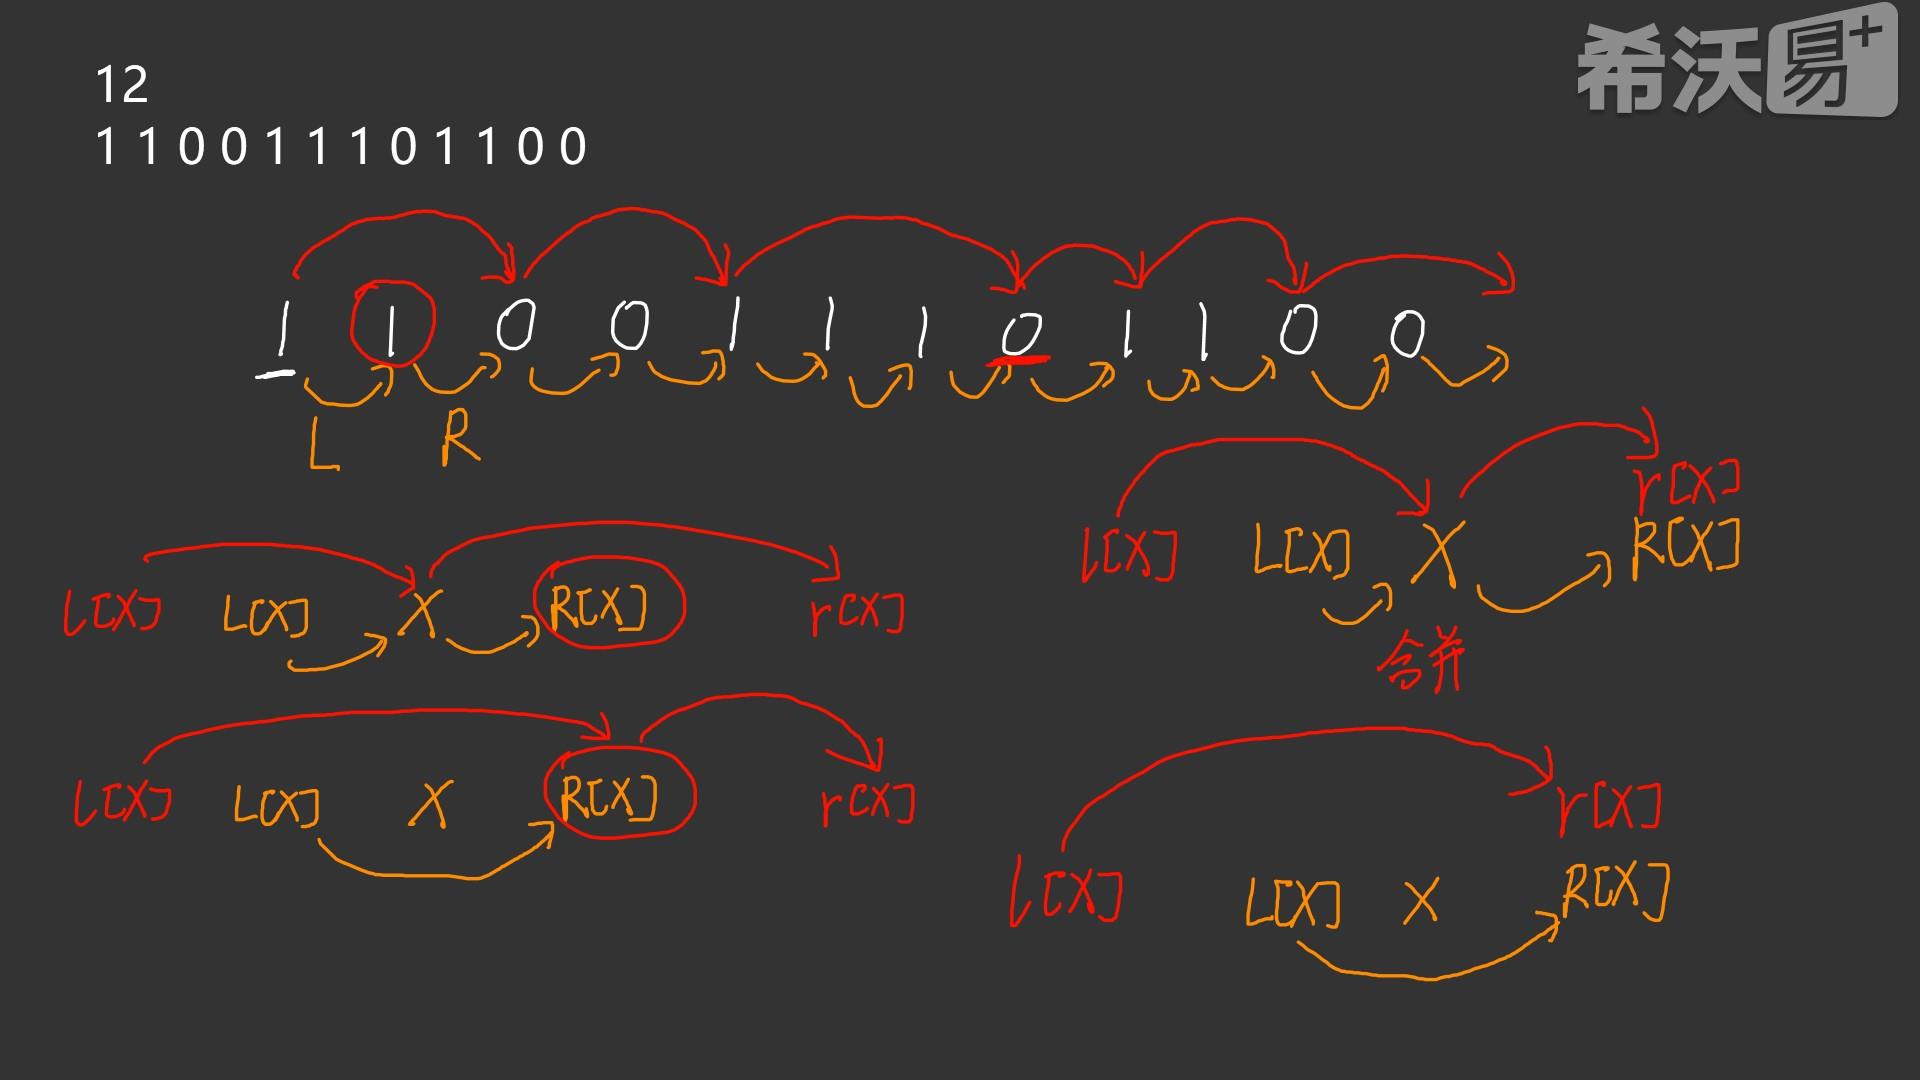 希沃易+
12
1 1 0 0 1 1 1 0 1 1 0 0
1 1 0 0 1 1 1 0 1 1 0 0
L R
l[X] L[X] X R[X] r[X]
l[X] L[X] X R[X] r[X]
r[X]
l[X] L[X] X R[X]
合并
r[X]
l[X] L[X] X R[X]